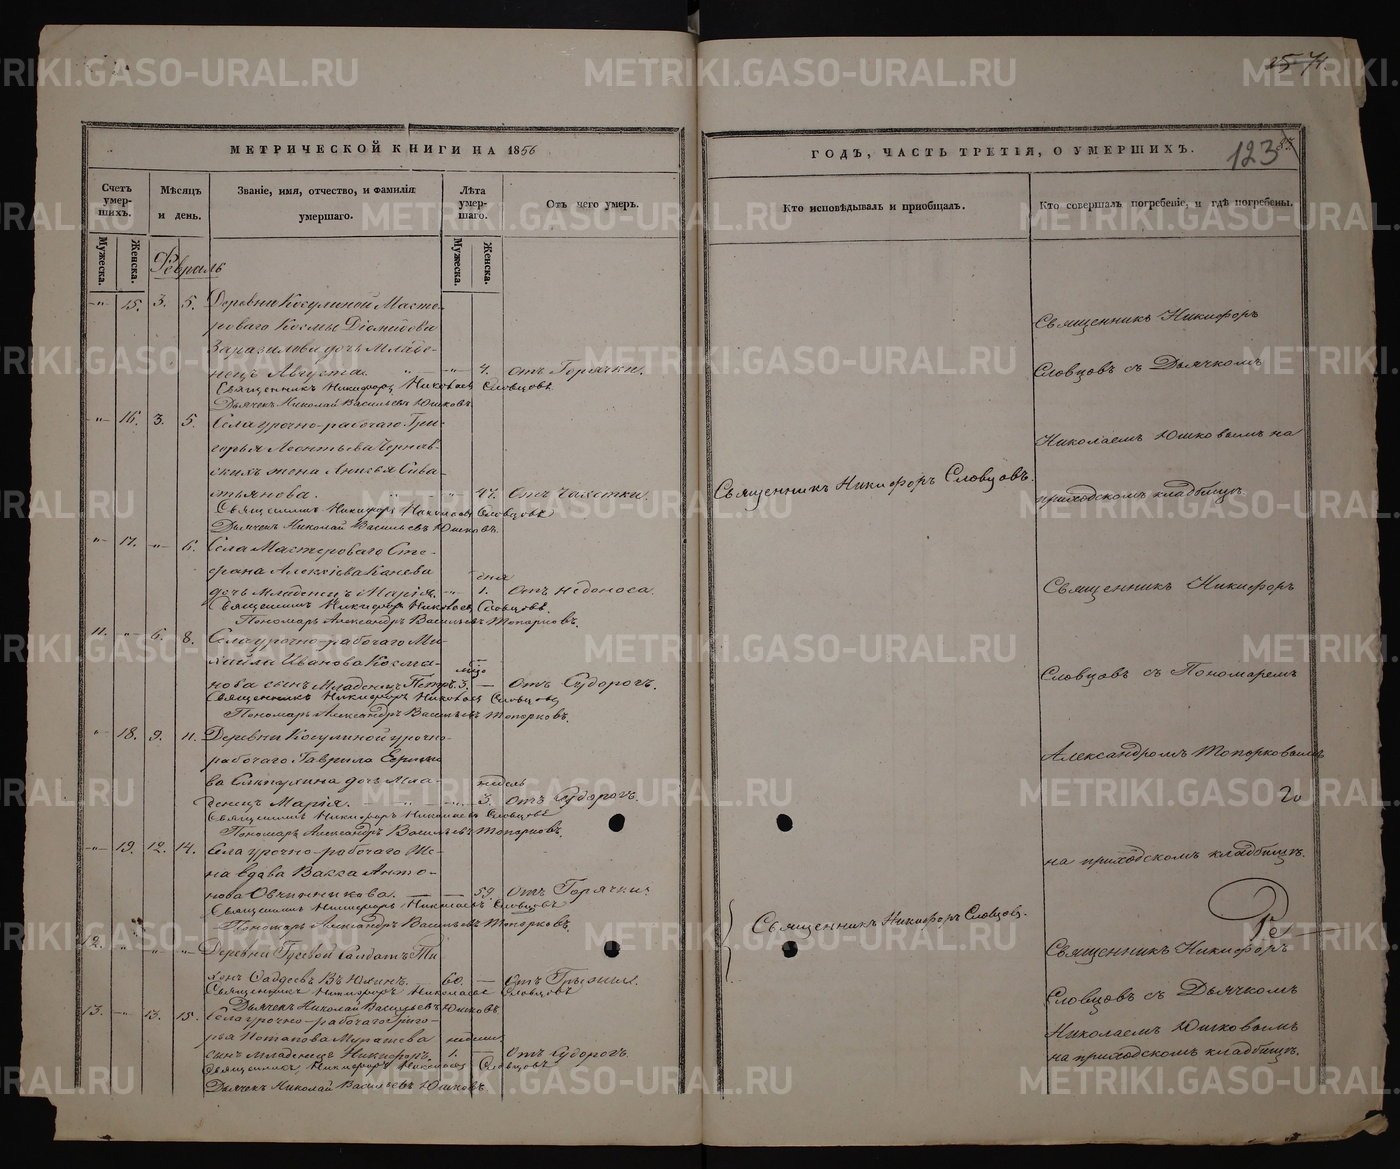 25 71.
МЕТРИЧЕСКОЙ КНИГИ НА 1856
ГОДЪ, ЧАСТЬ ТРЕТІЯ, О УМЕРШИХЪ.
123
Счетъ умер-шихъ.
Мужеска.
Женска.
Мѣсяцъ и день.
Званіе, имя, отчество, и фамилія умершаго.
Лѣта умер-шаго.
Мужеска.
Женска.
Отъ чего умеръ.
Кто исповѣдывалъ и пріобщалъ.
Кто совершалъ погребеніе, и гдѣ погребены.
Февраль
-"- 15. 3. 5. Деревни Косулиной Масте-
роваго Космы Діомидова
дочь Младе-
нецъ Августа. " -"- 4. отъ Горячки.
Священникъ Никифоръ Николаевъ Словцовъ
Дьячекъ Николай Васильевъ Юшковъ.
-"- 16. 3. 5. Села урочно-рабочаго Гри-
горья Леонтьева
жена Анисья Сева-
тьянова. " " 47. Отъ Чахотки.
Священникъ Никифоръ Николаевъ Словцовъ
Дьячекъ Николай Васильевъ Юшковъ.
-"- 17. -"- 6. Села Мастероваго Сте-
фана Алексіева Канева
дня
дочь Младенецъ Марія. -"- 1. Отъ недоноса.
Священникъ Никифоръ Николаевъ Словцовъ.
Пономарь Александръ Васильевъ Топорковъ.
11. -"- 6. 8. Села урочно-рабочаго Ми-
хаила Иванова Косма-
нова сынъ Младенецъ Петръ. 3. — Отъ Судорогъ.
Священникъ Никифоръ Николаевъ Словцовъ
Пономарь Александръ Васильевъ Топорковъ.
-"- 18. 9. 11. Деревни Косулиной урочно-
рабочаго Гавріила
дочь Мла-
недель
денецъ Марія. — " — -"- 3. отъ Судорогъ.
Священникъ Никифоръ Николаевъ Словцовъ
Пономарь Александръ Васильевъ Топорковъ.
-"- 19. 12. 14. Села урочно-рабочаго Же-
на вдова Васса Анто-
нова Овчинникова. — — 59. Отъ Горячки.
Священникъ Никифоръ Николаевъ Словцовъ
Пономарь Александръ Васильевъ Топорковъ.
12. " " " Деревни Гусевой Солдатъ Ти-
хонъ 60. — Отъ Грыжи.
Священникъ Никифоръ Николаевъ Словцовъ
Дьячекъ Николай Васильевъ Юшковъ
13. -"- 13. 15. Села урочно-рабочаго Григо-
рья Потапова Мурашева
недели
сынъ младенецъ Никифоръ. 1. — Отъ Судорогъ.
Священникъ Никифоръ Николаевъ Словцовъ
Дьячекъ Николай Васильевъ Юшковъ.
Священникъ Никифоръ Словцовъ.
Священникъ Никифоръ Словцовъ.
Священникъ Никифоръ
Словцовъ съ Дьячкомъ
Николаемъ Юшковымъ на
приходскомъ кладбищѣ.
Священникъ Никифоръ
Словцовъ съ Пономаремъ
Александромъ Топорковымъ
на приходскомъ кладбищѣ.
Священникъ Никифоръ
Словцовъ съ Дьячкомъ
Николаемъ Юшковымъ
на приходскомъ кладбищѣ.
METRIKI.GASO-URAL.RU